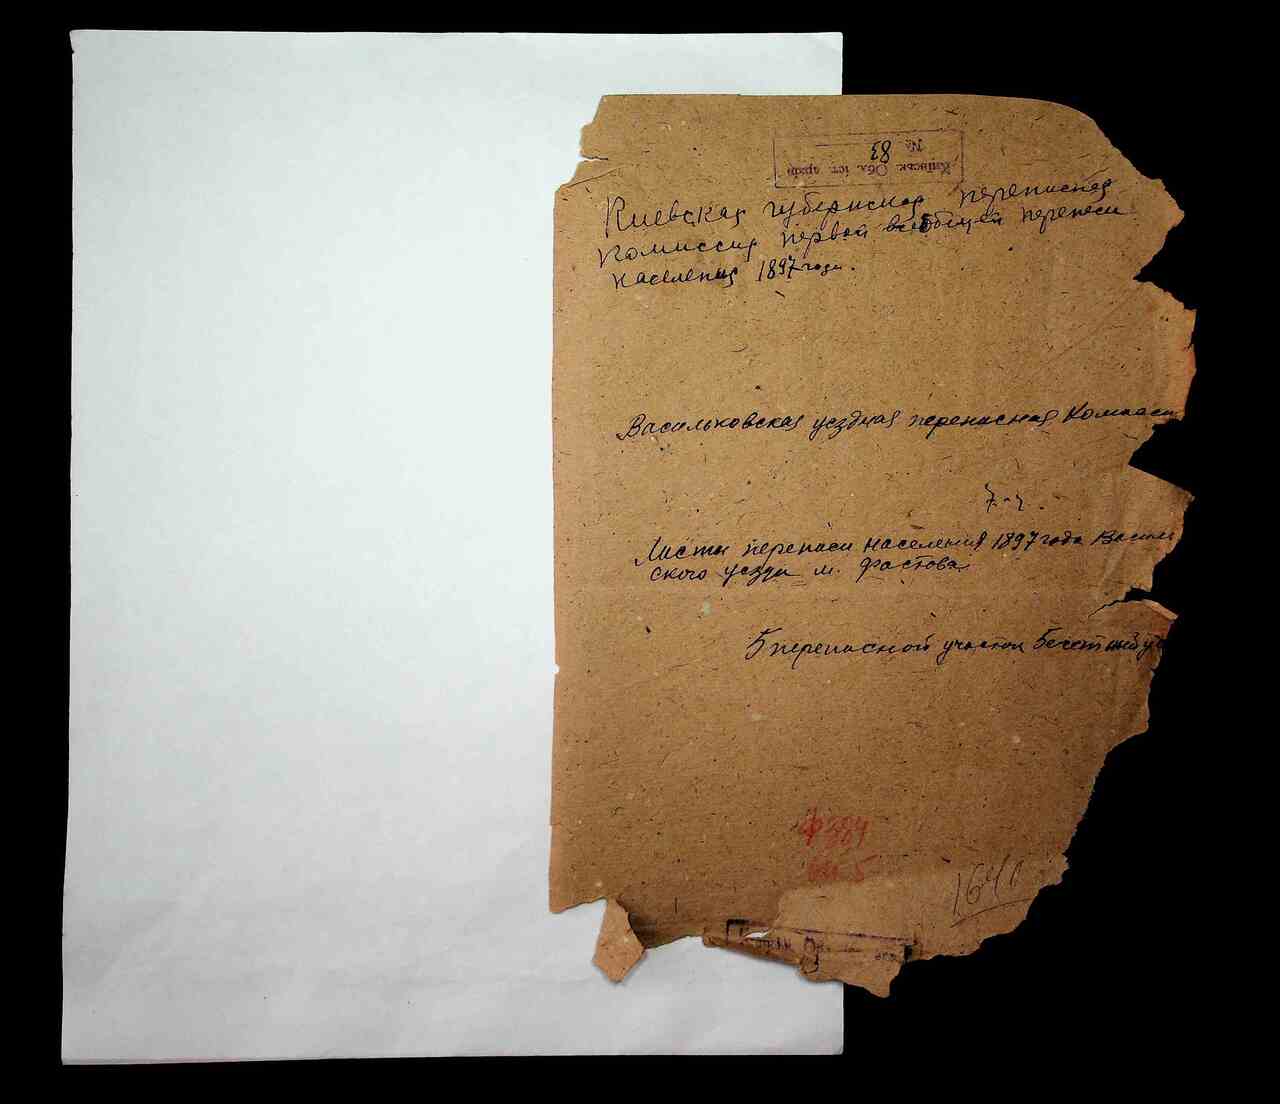 Київськ. Обл. іст. архів
№ 83
Киевская губернская переписная
комиссия первой всеобщей переписи
населения 1897 года.
Васильковская уездная переписная комисси
7-
Листы переписи населения 1897 года Василь
ского уезда м. Фастова
5 переписной участок 5 счетный
ф 384
оп. 5